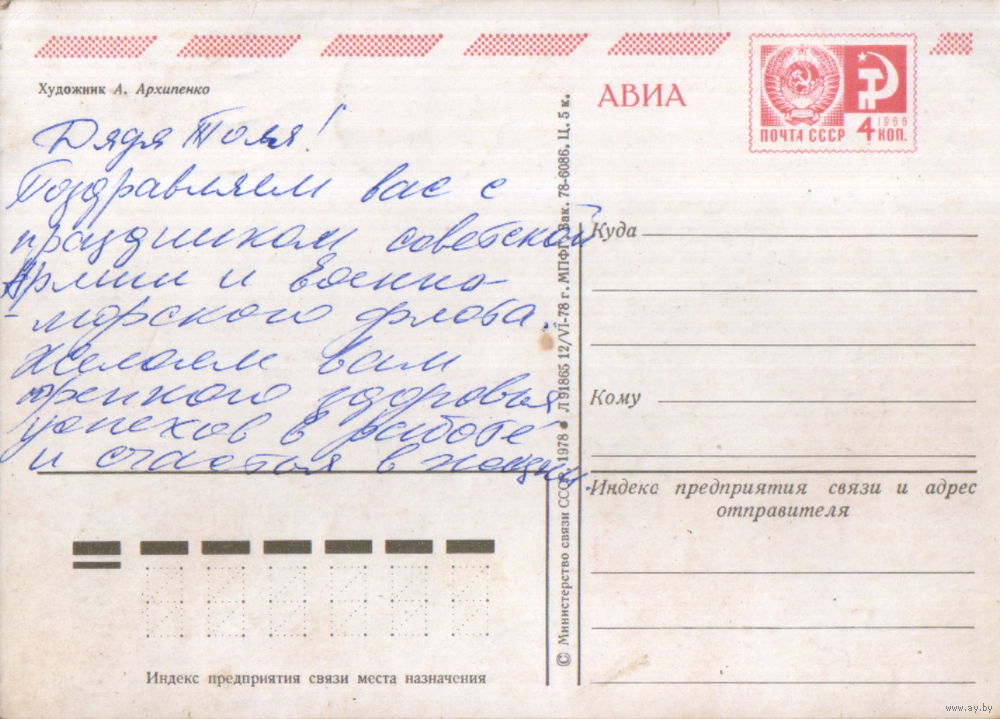 Художник А. Архипенко
Дядя Толя!
Поздравляем вас с
праздником советской
Армии и Военно-
-морского флота.
Желаем вам
крепкого здоровья
успехов в работе
и счастья в жизни.
Индекс предприятия связи места назначения
© Министерство связи СССР 1978 Л 91865 12/VI-78 г. МПФГ. Зак. 78-6086. Ц. 5 к.
АВИА
ПОЧТА СССР
1966
4 КОП.
Куда
Кому
Индекс предприятия связи и адрес
отправителя
www.ay.by